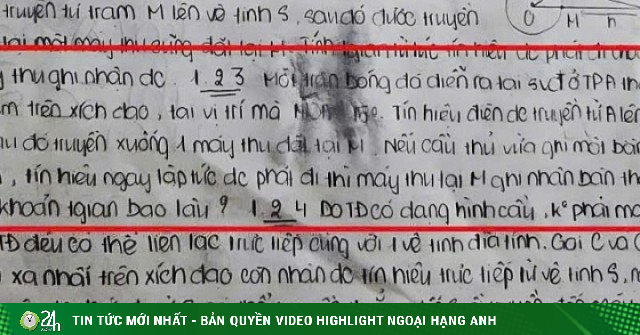 truyền từ trạm M lên vệ tinh S, sau đó được truyền
O M n
thu ghi nhận dc. 1.23 Một trận bóng đá diễn ra tại svđ ở TPA
m trên xích đạo, tại vị trí mà. Tín hiệu điện dc truyền từ A lên
đó truyền xuống 1 máy thu đặt tại M. Nếu cầu thủ vừa ghi một bàn
, tín hiệu ngay lập tức dc phát đi thì máy thu tại M ghi nhận bàn th
khoản tgian bao lâu? 1.24 Do TĐ có dạng hình cầu, k° phải mọ
TĐ đều có thể liên lạc trực tiếp cùng với 1 vệ tinh địa tĩnh. Gọi C và
xa nhất trên xích đạo còn nhận dc tín hiệu trực tiếp từ vệ tinh S.
24h TIN TỨC MỚI NHẤT - BẢN QUYỀN VIDEO HIGHLIGHT NGOẠI HẠNG ANH